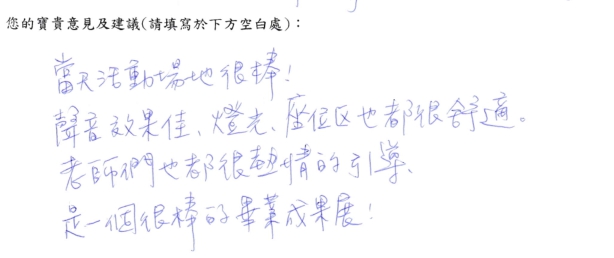 您的寶貴意見及建議(請填寫於下方空白處)：
當天活動場地很棒！
聲音效果佳、燈光、座位区也都很舒適。
老師們也都很熱情的引導、
是一個很棒的畢業成果展！